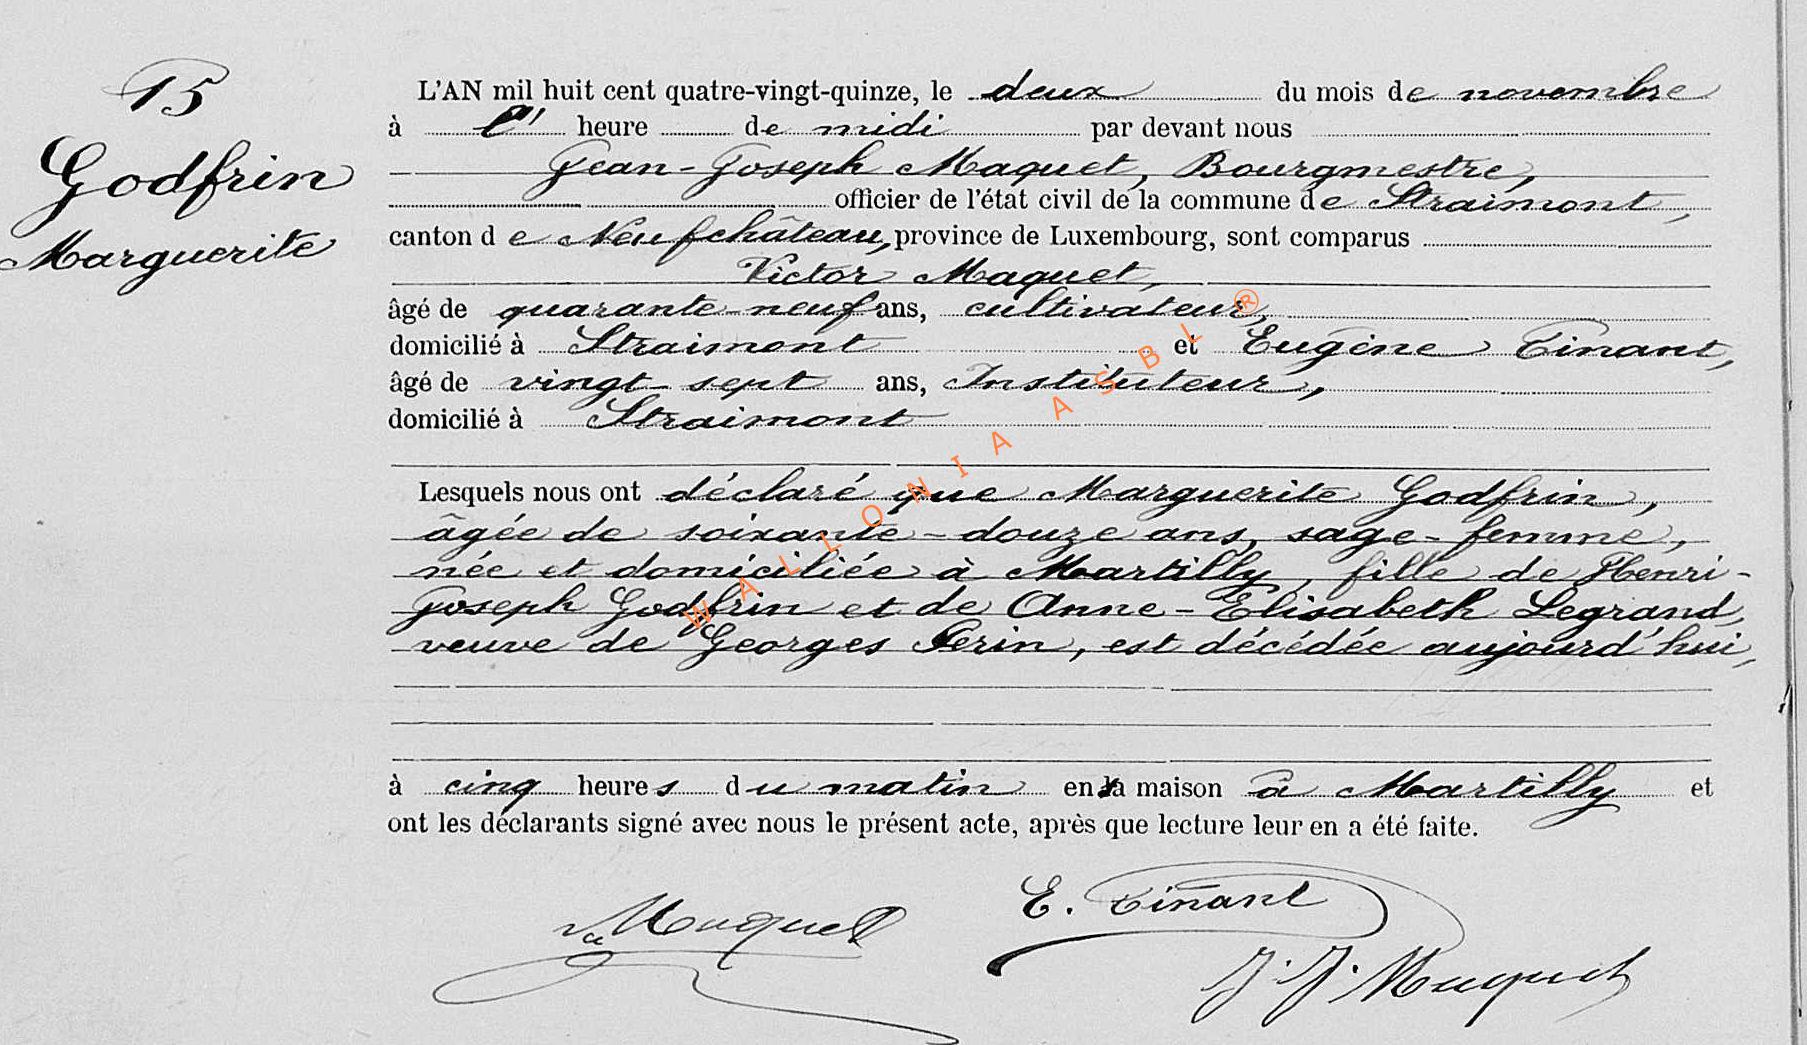 15
Godfrin
Marguerite
L'AN mil huit cent quatre-vingt-quinze, le deux du mois de novembre
à l' heure de midi par devant nous
Jean-Joseph Maquet, Bourgmestre,
officier de l'état civil de la commune de Straimont,
canton de Neufchâteau, province de Luxembourg, sont comparus
Victor Maquet,
âgé de quarante-neuf ans, cultivateur,
domicilié à Straimont et Eugène Tinant,
âgé de vingt-sept ans, Instituteur,
domicilié à Straimont
Lesquels nous ont déclaré que Marguerite Godfrin,
âgée de soixante-douze ans, sage-femme,
née et domiciliée à Martilly, fille de Henri-
Joseph Godfrin et de Anne-Elisabeth Legrand,
veuve de Georges Perin, est décédée aujourd'hui,
à cinq heures du matin en sa maison à Martilly et
ont les déclarants signé avec nous le présent acte, après que lecture leur en a été faite.
Maquet
E. Tinant
J. J. Maquet
WALLONIA ASBL ®